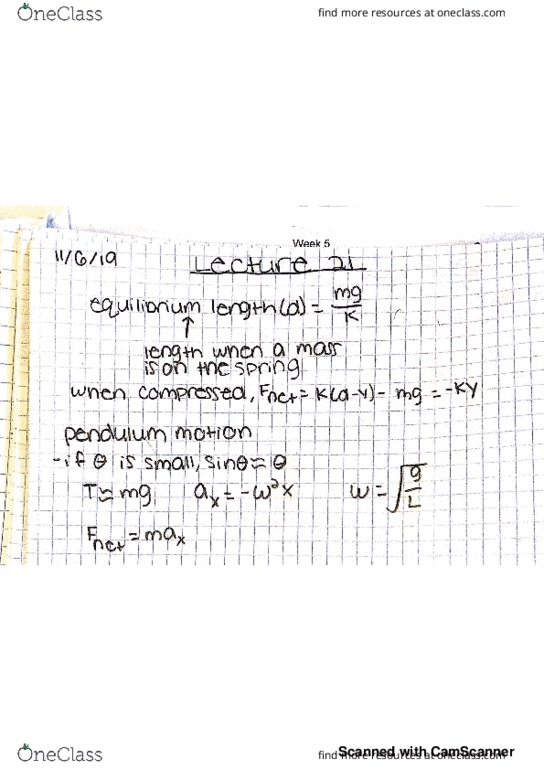 OneClass
find more resources at oneclass.com
Week 5
11/6/19
Lecture 21
equilibrium length (d) = mg/K
↑
length when a mass
is on the spring
when compressed, Fnet = K(d-y) - mg = -Ky
pendulum motion
- if θ is small, sinθ ≈ θ
T ≈ mg aₓ = -ω²x ω = √(g/L)
Fnet = maₓ
OneClass
find more resources at oneclass.com
Scanned with CamScanner